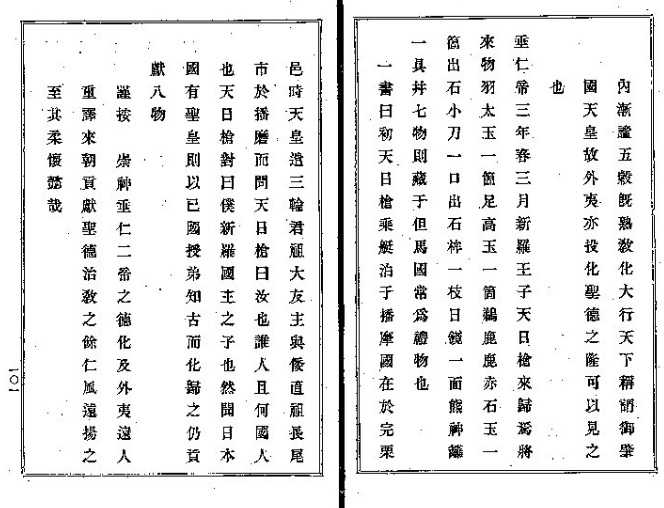 內漸謐五穀旣熟敎化大行天下稱謂御肇
國天皇故外夷亦投化聖德之隆可以見之
也
垂仁帝三年春三月新羅王子天日槍來歸焉將
來物羽太玉一箇足高玉一箇鵜鹿鹿赤石玉一
箇出石小刀一口出石桙一枝日鏡一面熊神籬
一具幷七物則藏于但馬國常爲禮物也
一書曰初天日槍乘艇泊于播摩國在於完栗
邑時天皇遣三輪君祖大友主與倭直祖長尾
市於播磨而問天日槍曰汝也誰人且何國人
也天日槍對曰僕新羅國主之子也然聞日本
國有聖皇則以已國授弟知古而化歸之仍貢
獻八物
謹按 崇神垂仁二帝之德化及外夷遠人
重譯來朝貢獻聖德治敎之餘仁風遠揚之
至其柔懷懿哉
一〇一